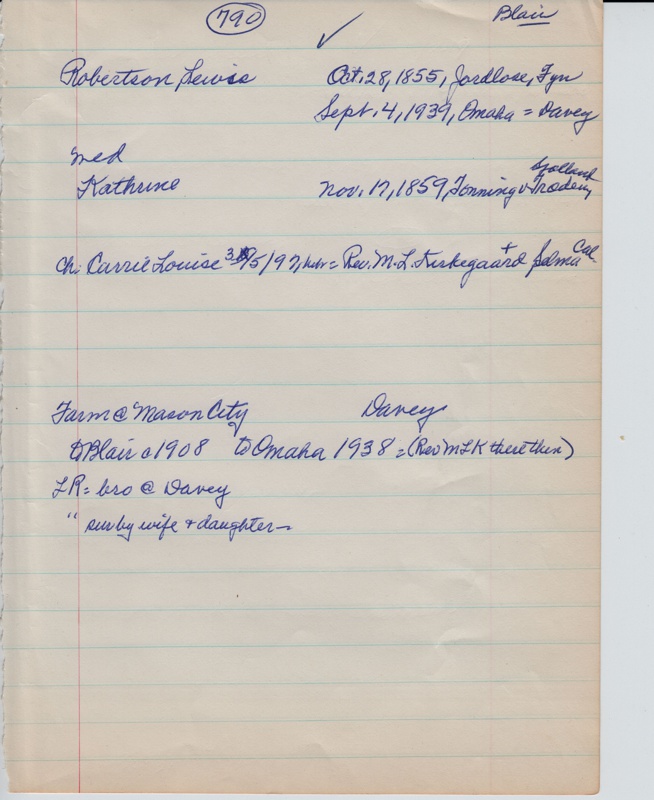 790 Blair
Robertson, Lewis Oct. 28, 1855, Jordlose, Fyn
Sept. 4, 1939, Omaha = Davey
med
Kathrine Nov. 17, 1859,
ch: Carrie Louise /5/97, = Rev. M. L. Kirkegaard + Selma Cal
Farm @ Mason City Davey
to Blair c 1908 to Omaha 1938 = (Rev MLK there then)
LR = bro @ Davey
" sur by wife + daughter -